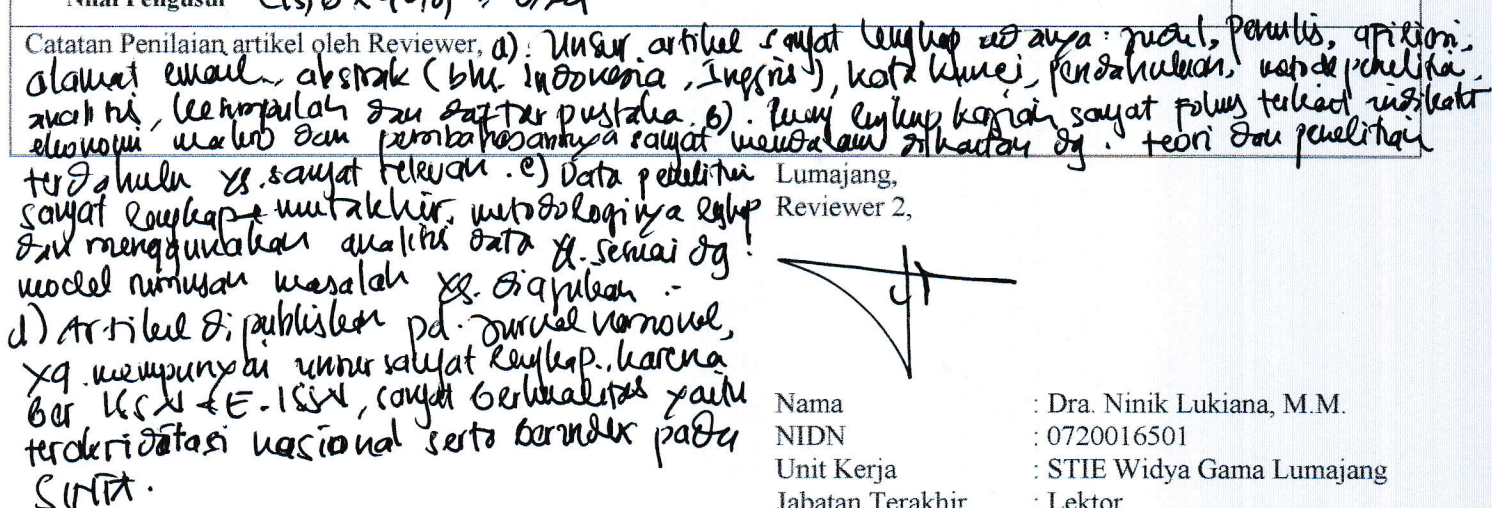 Nilai Pengusul
Catatan Penilaian artikel oleh Reviewer, a). Unsur artikel sangat lengkap adanya: judul, penulis, apiliasi,
alamat email, abstrak (bhs. indonesia, Inggris), kata kunci, pendahuluan, metode penelitia,
analisis, kesimpulan dan daftar pustaka. b). Ruang lingkup kajian sangat fokus terkait indikator
ekonomi makro dan pembahasannya sangat mendalam dikaitan dg. teori dan penelitian
terdahulu yg. sangat relevan. c) Data penelitian
sangat lengkap + mutakhir, metodologinya lengkap
dan menggunakan analisis data yg. sesuai dg
model rumusan masalah yg. diajukan.
d) Artikel di publiskan pd. jurnal nasional,
yg. mempunyai unsur sangat lengkap, karena
ber ISSN + E-ISSN, sangat berkualitas yaitu
terakriditatasi nasional serta berindex pada
SINTA.
Lumajang,
Reviewer 2,
Nama : Dra. Ninik Lukiana, M.M.
NIDN : 0720016501
Unit Kerja : STIE Widya Gama Lumajang
Jabatan Terakhir : Lektor